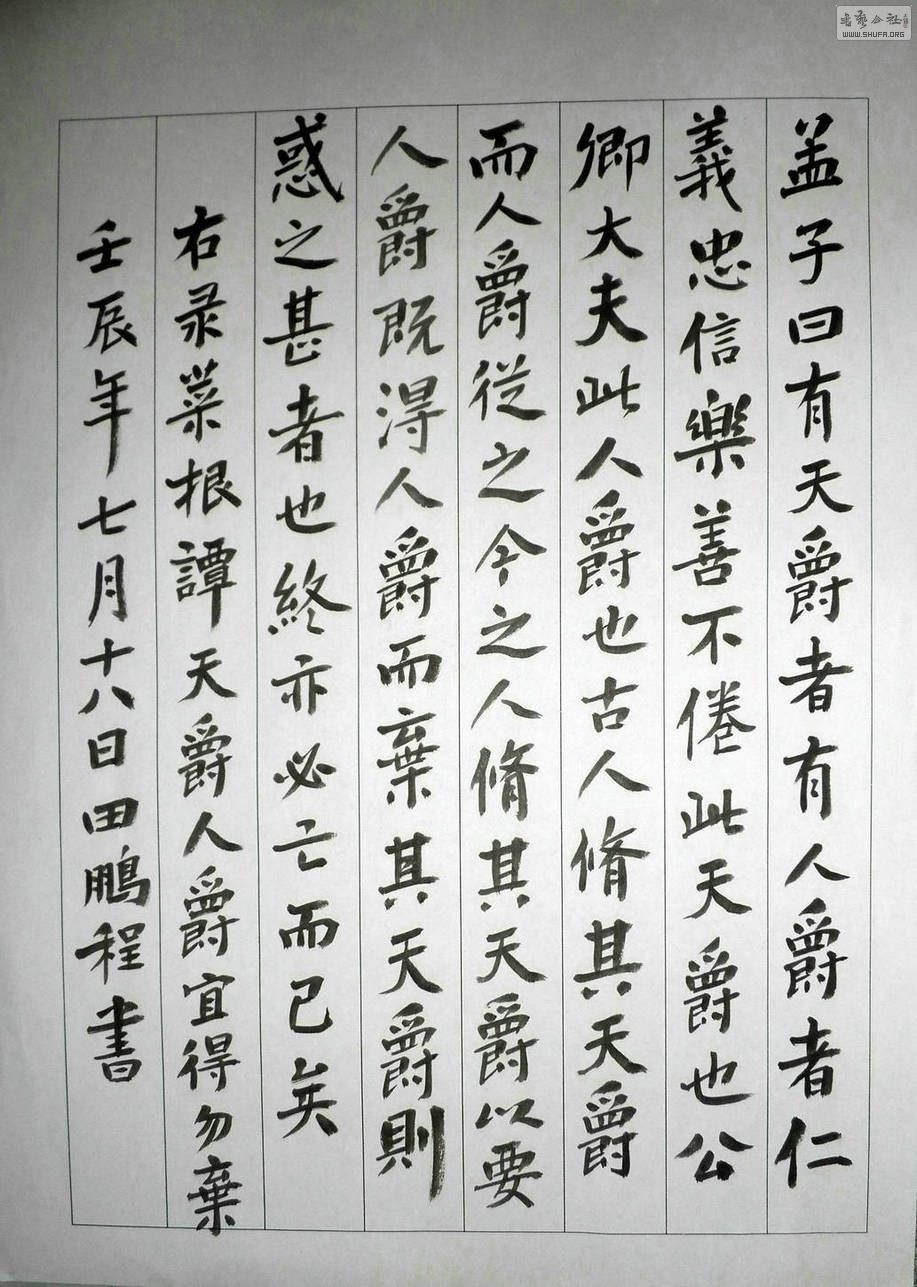 孟子曰有天爵者有人爵者仁
義忠信樂善不倦此天爵也公
卿大夫此人爵也古人脩其天爵
而人爵從之今之人脩其天爵以要
人爵既淂人爵而棄其天爵則
惑之甚者也終亦必亡而已矣
右录菜根譚天爵人爵宜得勿棄
壬辰年七月十八日田鵬程書
WWW.SHUFA.ORG